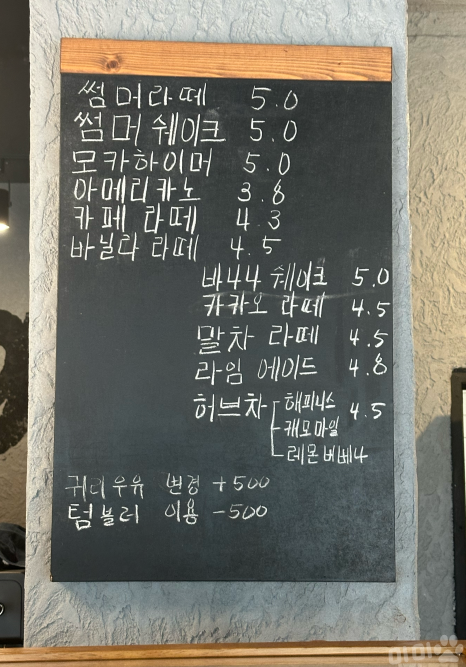 썸머라떼 5.0
썸머 쉐이크 5.0
모카하이머 5.0
아메리카노 3.8
카페 라떼 4.3
바닐라 라떼 4.5
바나나 쉐이크 5.0
카카오 라떼 4.5
말차 라떼 4.5
라임 에이드 4.8
허브차 해피니스 4.5
캐모마일
레몬버베나
귀리우유 변경 +500
텀블러 이용 -500